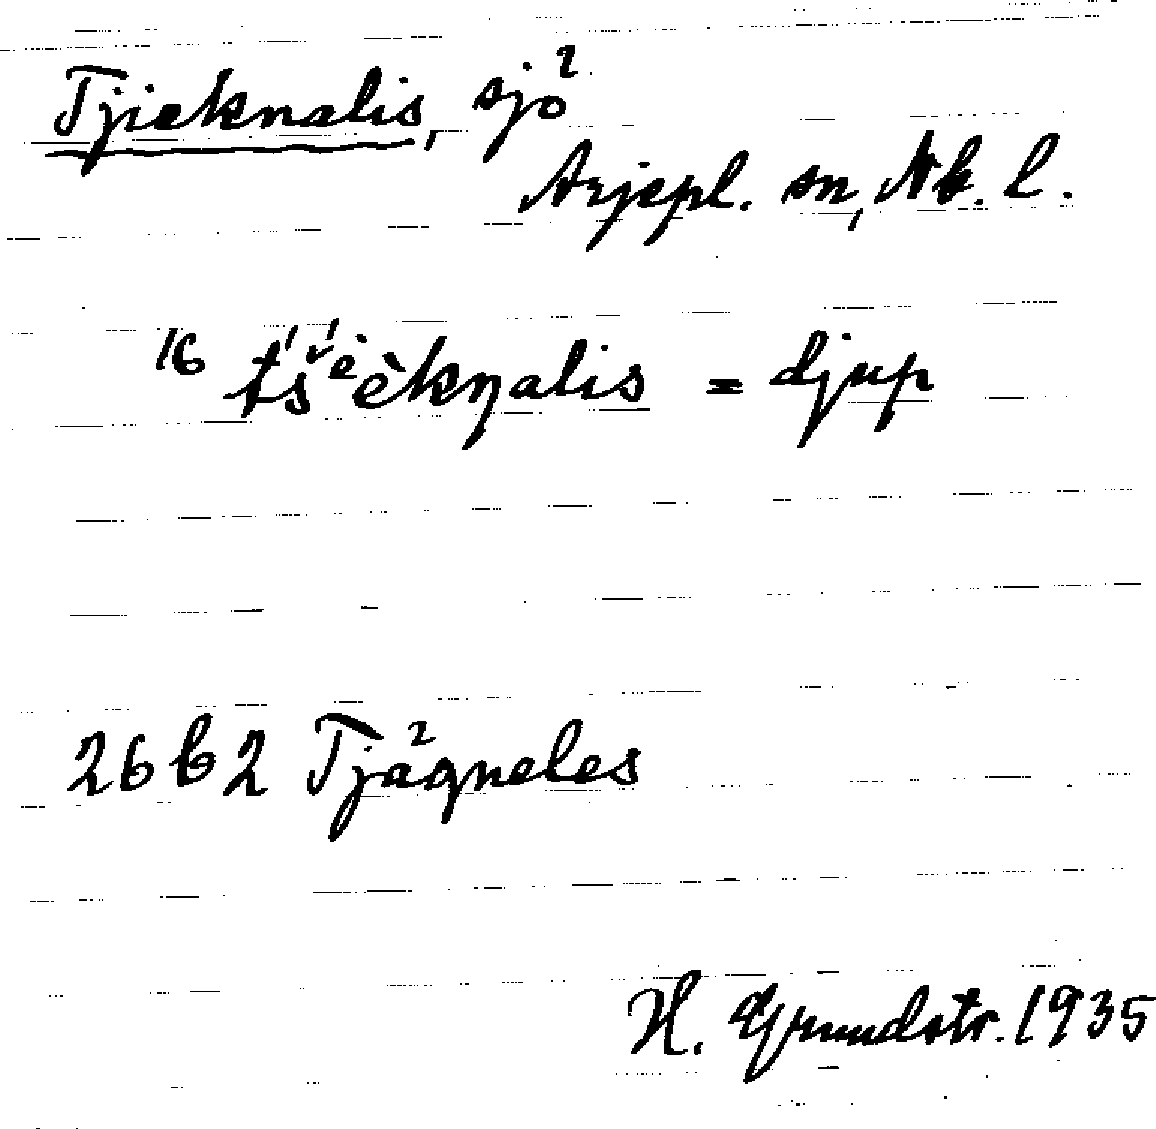 Tjieknalis, sjö²
Arjepl. sn, Nb. l.
16 tš'ēèkŋalis = djup
26 b 2 Tjäqneles
H. Grundstr. 1935